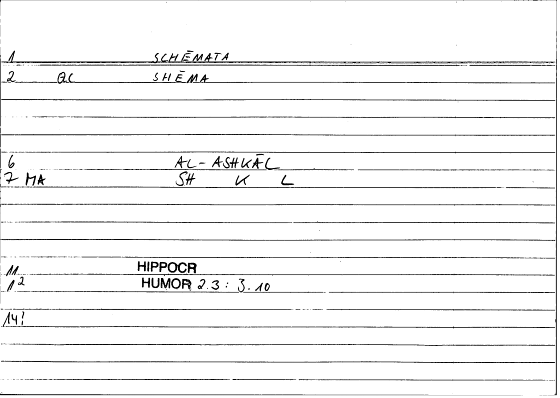 1 SCHĒMATA
2 QC SHĒMA
6 AL-ASHKĀL
7 MA SH K L
11 HIPPOCR
12 HUMOR 2.3: 3.10
14!